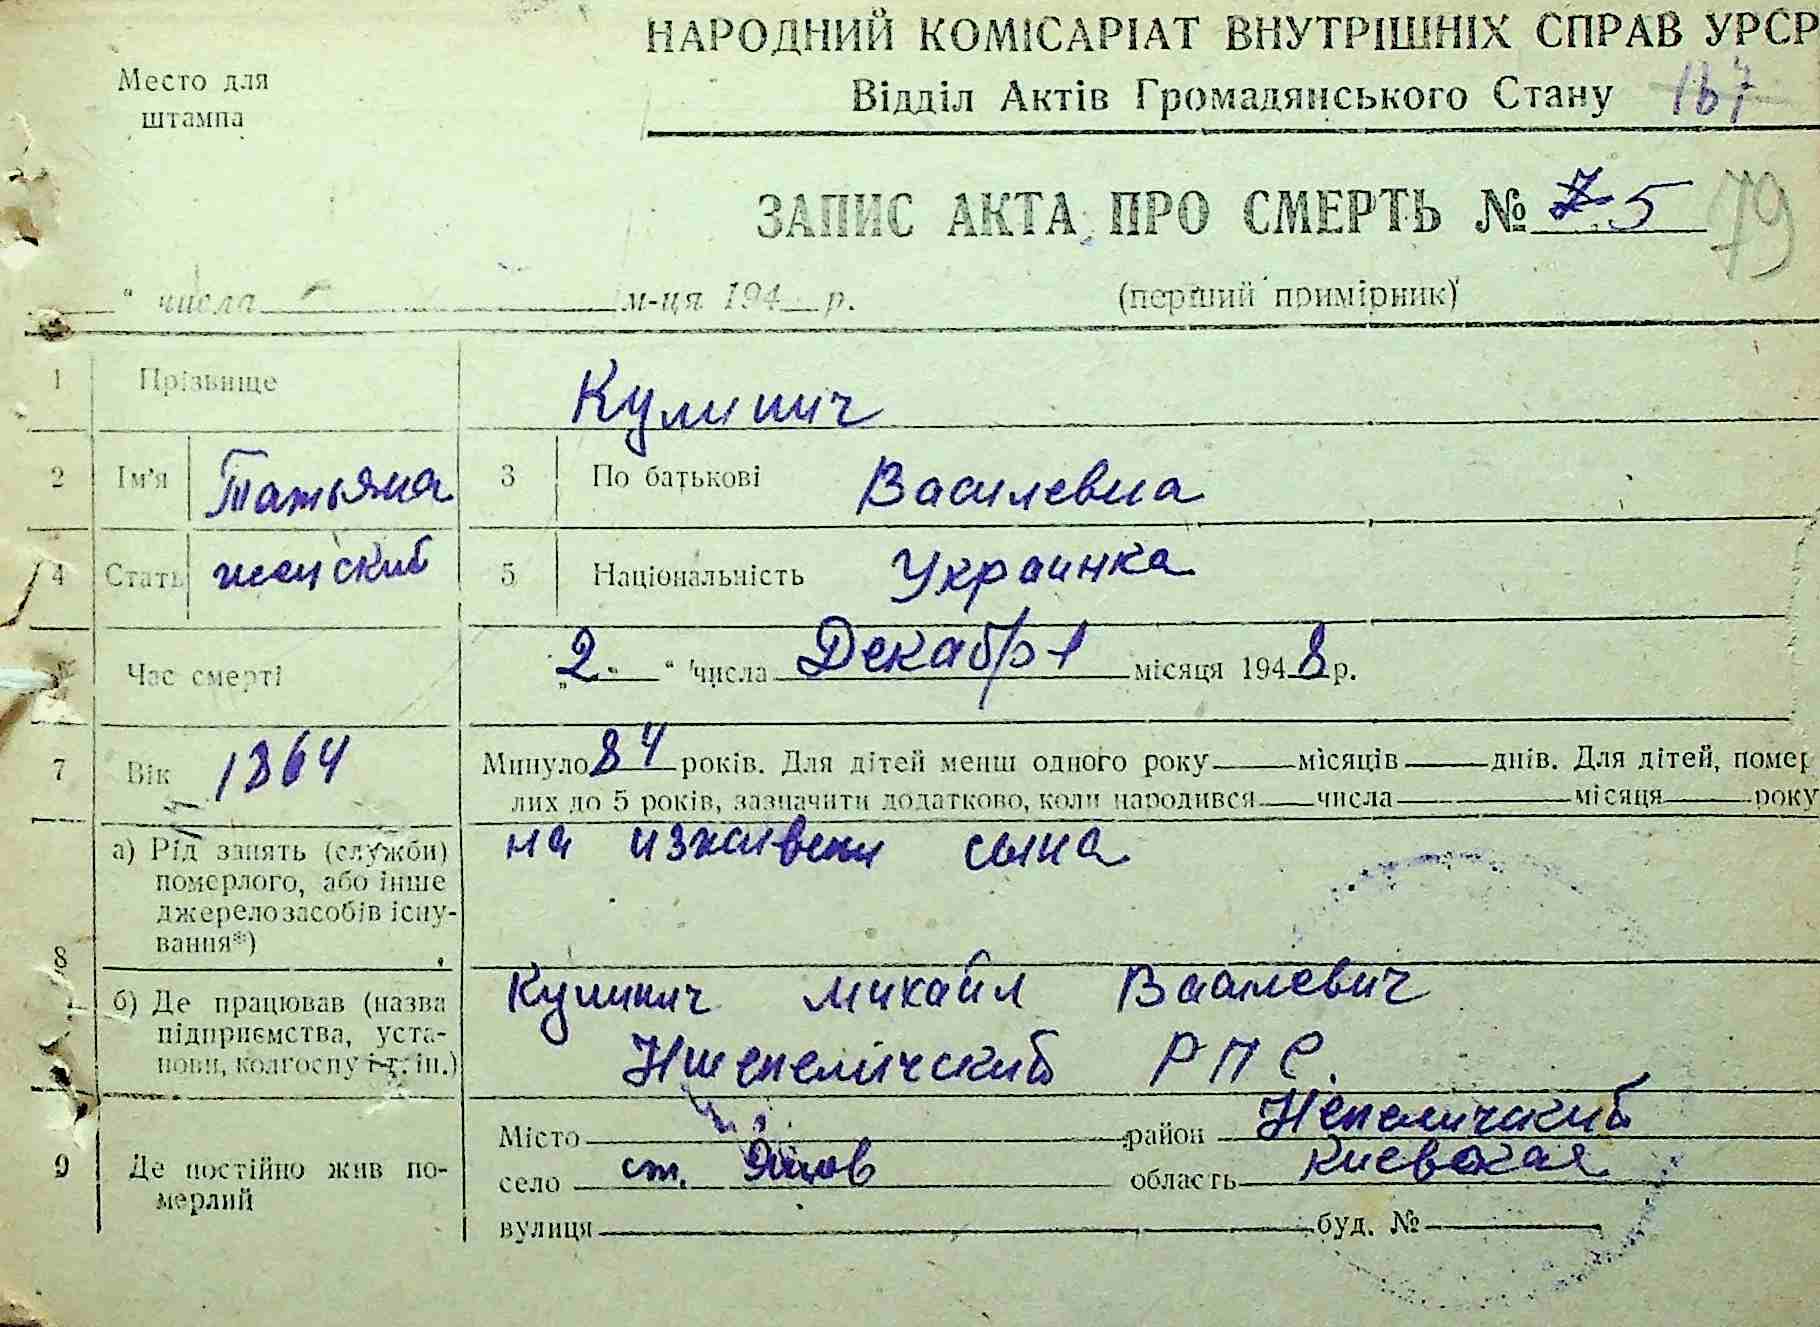 НАРОДНИЙ КОМІСАРІАТ ВНУТРІШНІХ СПРАВ УРСР
Место для штампа
Відділ Актів Громадянського Стану 167
ЗАПИС АКТА ПРО СМЕРТЬ № 5 79
" числа м-ця 194 р. (перший примірник)
1 Прізвище Кулинич
2 Ім'я Татьяна 3 По батькові Василевна
4 Стать женский 5 Національність Украинка
Час смерті „2" числа Декабря місяця 1948 р.
7 Вік 1864 Минуло 84 років. Для дітей менш одного року місяців днів. Для дітей, помер
лих до 5 років, зазначити додатково, коли народився числа місяця року
8 а) Рід занять (служби) померлого, або інше джерело засобів існування*) на сына
б) Де працював (назва підприємства, установи, колгоспу і т. ін.) Кулинич Михаил Василевич
РПС.
9 Де постійно жив померлий
Місто район
село ст. Янов область Киевская
вулиця буд. №